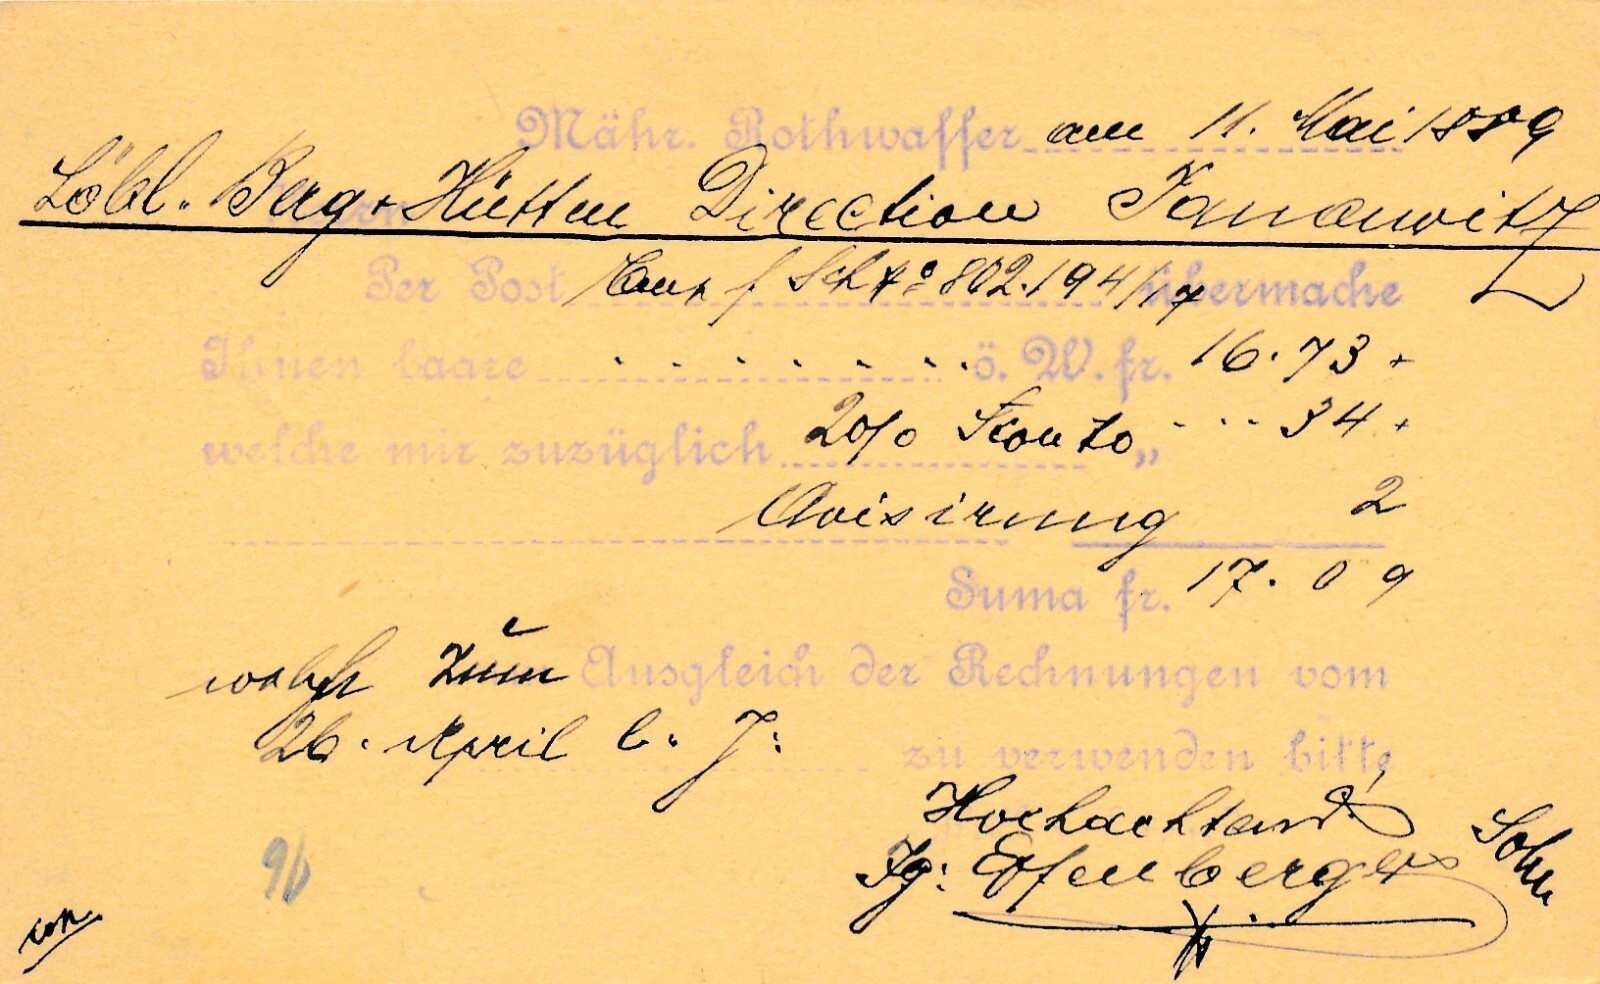 Mähr. Rothwasser am 11. Mai 1889
Löbl. Berg & Hütten Direction Janowitz
Per Post Sch No 802.194 übermache
Ihnen baare ö. W. fr. 16.73
welche mir zuzüglich 2% Skonto „ 34
Avisirung 2
Suma fr. 17.09
zum Ausgleich der Rechnungen vom
26. April l. J. zu verwenden bitte
Hochachtend
Ig: Effenberger's Sohn
96